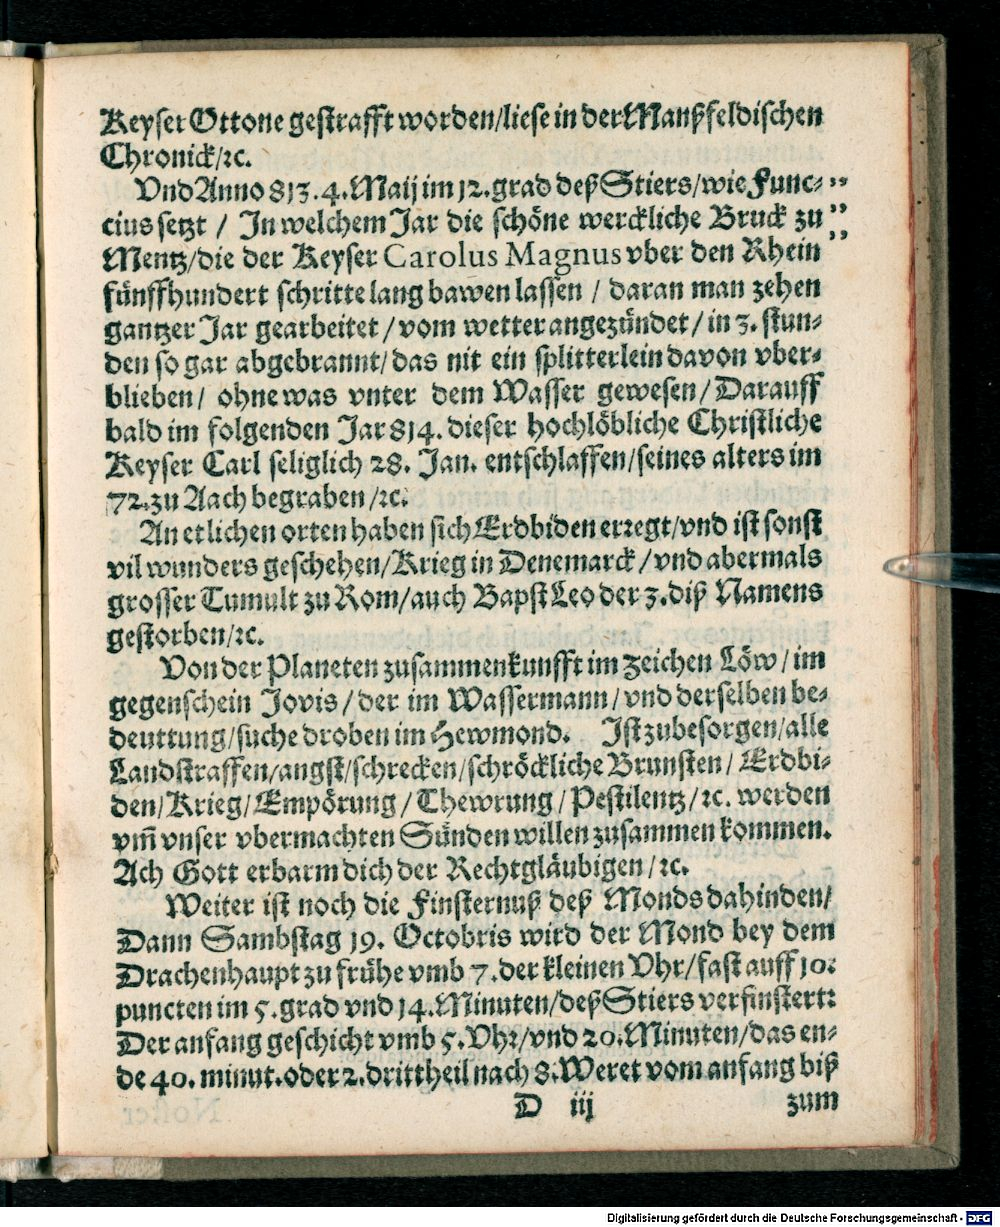 Keyser Ottone gestrafft worden/liese in der Manßfeldischen
Chronick/ꝛc.
Vnd Anno 813. 4. Maij im 12. grad deß Stiers/wie Func-
cius setzt / In welchem Jar die schöne werckliche Bruck zu
Mentz/die der Keyser Carolus Magnus vber den Rhein
fünffhundert schritte lang bawen lassen / daran man zehen
gantzer Jar gearbeitet / vom wetter angezündet / in 3. stun-
den so gar abgebrannt/das nit ein splitterlein davon vber-
blieben/ ohne was vnter dem Wasser gewesen/ Darauff
bald im folgenden Jar 814. dieser hochlöbliche Christliche
Keyser Carl seliglich 28. Jan. entschlaffen/seines alters im
72. zu Aach begraben /ꝛc.
An etlichen orten haben sich Erdbiden erregt/vnd ist sonst
vil wunders geschehen/Krieg in Denemarck / vnd abermals
grosser Tumult zu Rom/auch Bapst Leo der 3. diß Namens
gestorben/ꝛc.
Von der Planeten zusammenkunfft im zeichen Löw / im
gegenschein Jovis / der im Wassermann / vnd derselben be-
deuttung/suche droben im Hewmond. Ist zubesorgen/alle
Landstraffen/angst/schrecken/schröckliche Brunsten / Erdbi-
den/Krieg/Empörung / Thewrung / Pestilentz/ꝛc. werden
vm̃ vnser vbermachten Sünden willen zusammen kommen.
Ach Gott erbarm dich der Rechtgläubigen /ꝛc.
Weiter ist noch die Finsternuß deß Monds dahinden/
Dann Sambstag 19. Octobris wird der Mond bey dem
Drachenhaupt zu frühe vmb 7. der kleinen Vhr/fast auff 10.
puncten im 5. grad vnd 14. Minuten/deß Stiers verfinstert:
Der anfang geschicht vmb 5. Vhr/vnd 20. Minuten/das en-
de 40. minut. oder 2. drittheil nach 8. Weret vom anfang biß
D iij zum
Digitalisierung gefördert durch die Deutsche Forschungsgemeinschaft - DFG